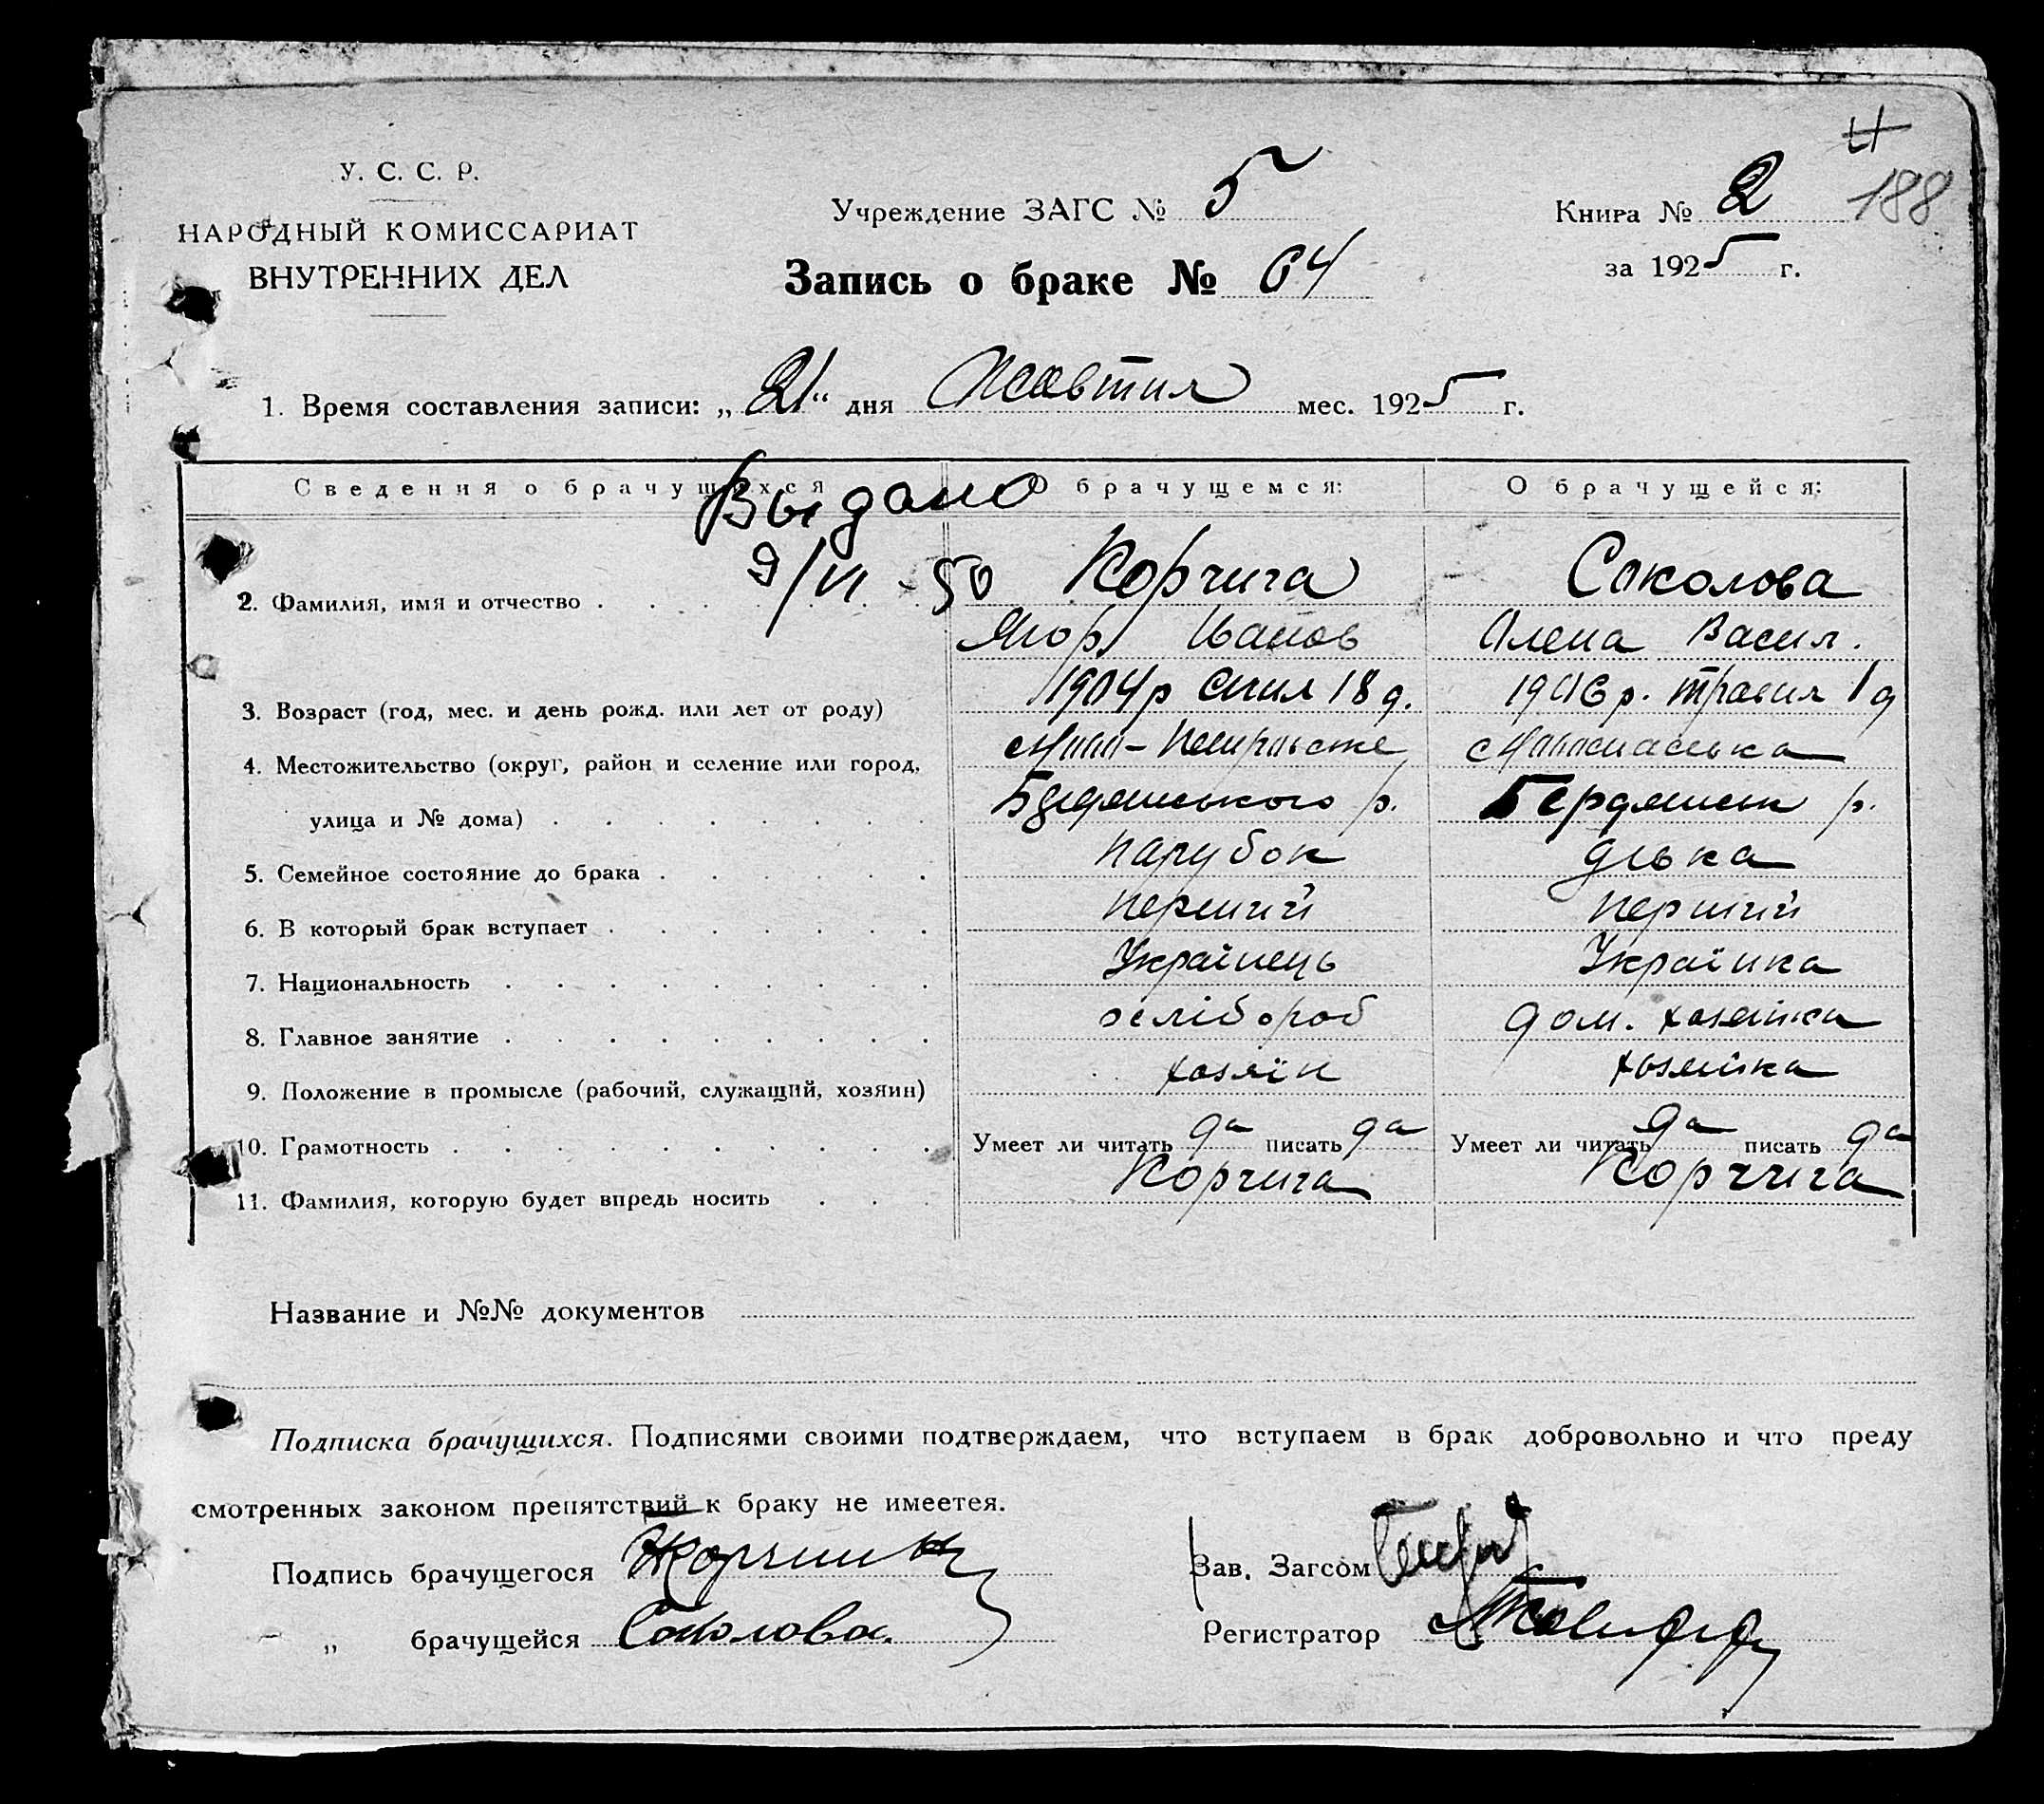 У. С. С. Р.
НАРОДНЫЙ КОМИССАРИАТ
ВНУТРЕННИХ ДЕЛ
Учреждение ЗАГС № 5
Книга № 2
188
за 1925 г.
Запись о браке № 64
1. Время составления записи: „21“ дня Жовтня мес. 1925 г.
Сведения о брачущихся О брачущемся: О брачущейся:
Выдано
9/VI - 50
2. Фамилия, имя и отчество Корчига Соколова
Ягор Иванов Олена Васил.
3. Возраст (год, мес. и день рожд. или лет от роду) 1904 р Січня 18 д. 1906 р. Травня 1 д
4. Местожительство (округ, район и селение или город,
улица и № дома) Бердянського р. Бердянськ р.
5. Семейное состояние до брака парубок дівка
6. В который брак вступает перший перший
7. Национальность Українець Українка
8. Главное занятие хлібороб дом. хозяйка
9. Положение в промысле (рабочий, служащий, хозяин) хозяїн хозяйка
10. Грамотность Умеет ли читать да писать да Умеет ли читать да писать да
11. Фамилия, которую будет впредь носить Корчига Корчига
Название и №№ документов
Подписка брачущихся. Подписями своими подтверждаем, что вступаем в брак добровольно и что преду
смотренных законом препятствий к браку не имеется.
Подпись брачущегося
Зав. Загсом
„ брачущейся Соколова.
Регистратор